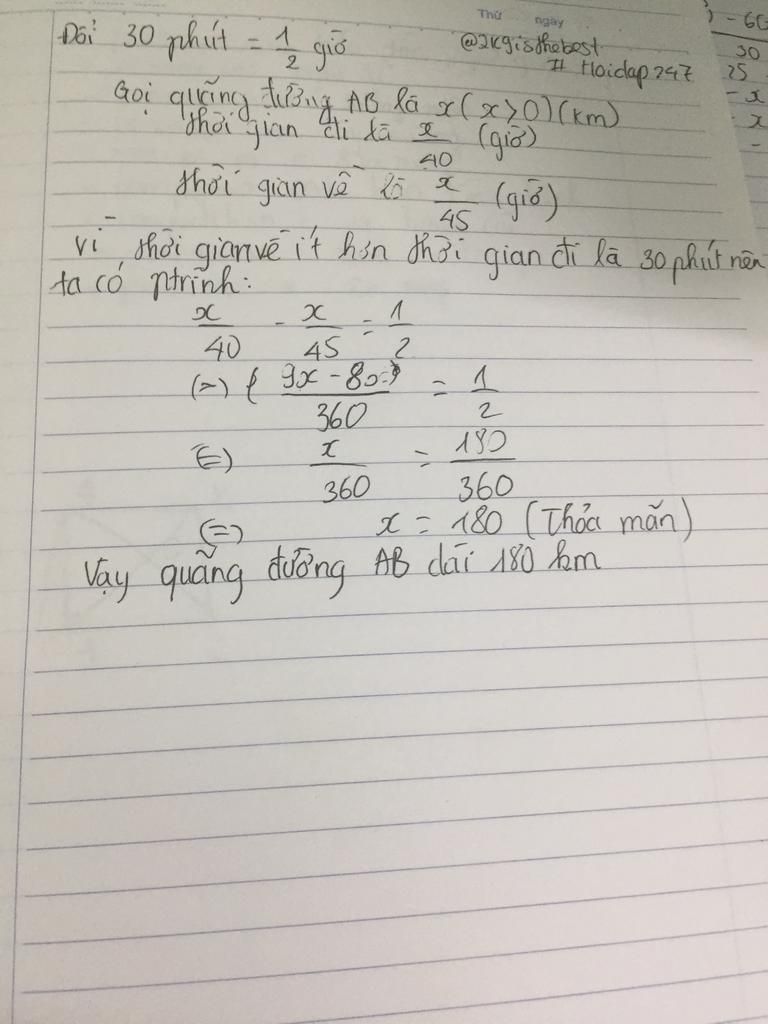 Thứ ngày
Đổi 30 phút = 1/2 giờ
@2kgisthebest
# Hoidap247
Gọi quãng đường AB là x (x > 0) (km)
thời gian đi là x/40 (giờ)
thời gian về là x/45 (giờ)
Vì thời gian về ít hơn thời gian đi là 30 phút nên
ta có ptrình:
x/40 - x/45 = 1/2
(=) 9x - 8x/360 = 1/2
(=) x/360 = 180/360
(=) x = 180 (Thỏa mãn)
Vậy quãng đường AB dài 180 km
- 60
30
25
- x
x
-